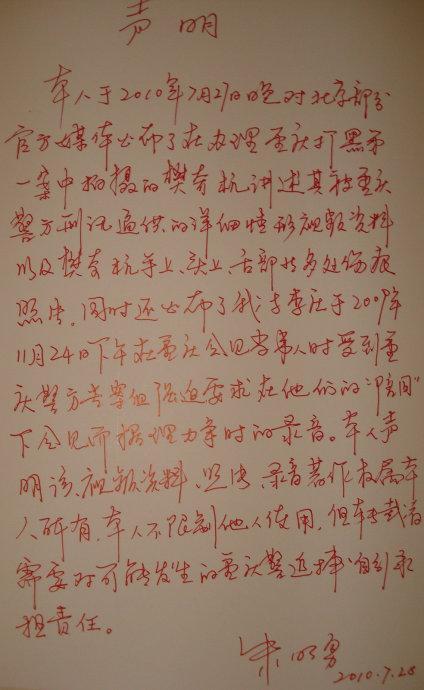 声明
本人于2010年7月27日晚对北京部分
官方媒体公布了在办理重庆打黑第
一案中拍摄的樊奇杭讲述其被重庆
警方刑讯逼供的详细情形视频资料
以及樊奇杭手上、头上、舌部等多处伤痕
照片。同时还公布了我与李庄于2009年
11月24日下午在重庆会见当事人时受到重
庆警方专案组强迫要求在他们的“陪同”
下会见而据理力争时的录音。本人声
明该视频资料、照片、录音著作权属本
人所有,本人不限制他人使用,但转载者
需要对可能发生的重庆警方追捕自行承
担责任。
朱明勇
2010.7.28